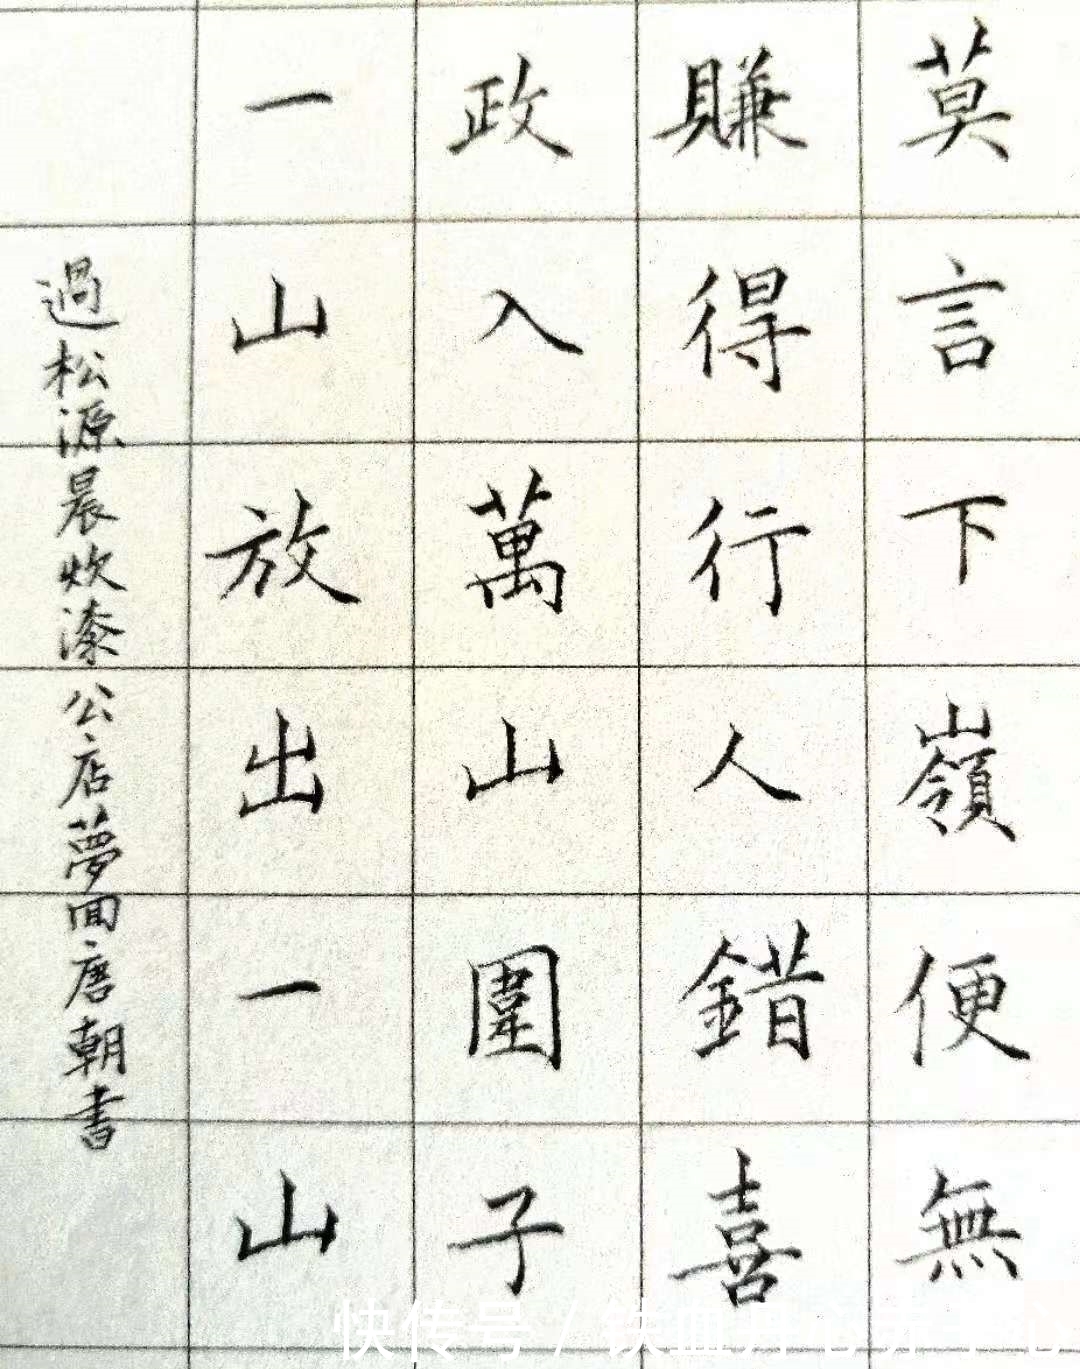 莫言下嶺便無
賺得行人錯喜
政入萬山圍子
一山放出一山
過松源晨炊漆公店夢回唐朝書
快传号/